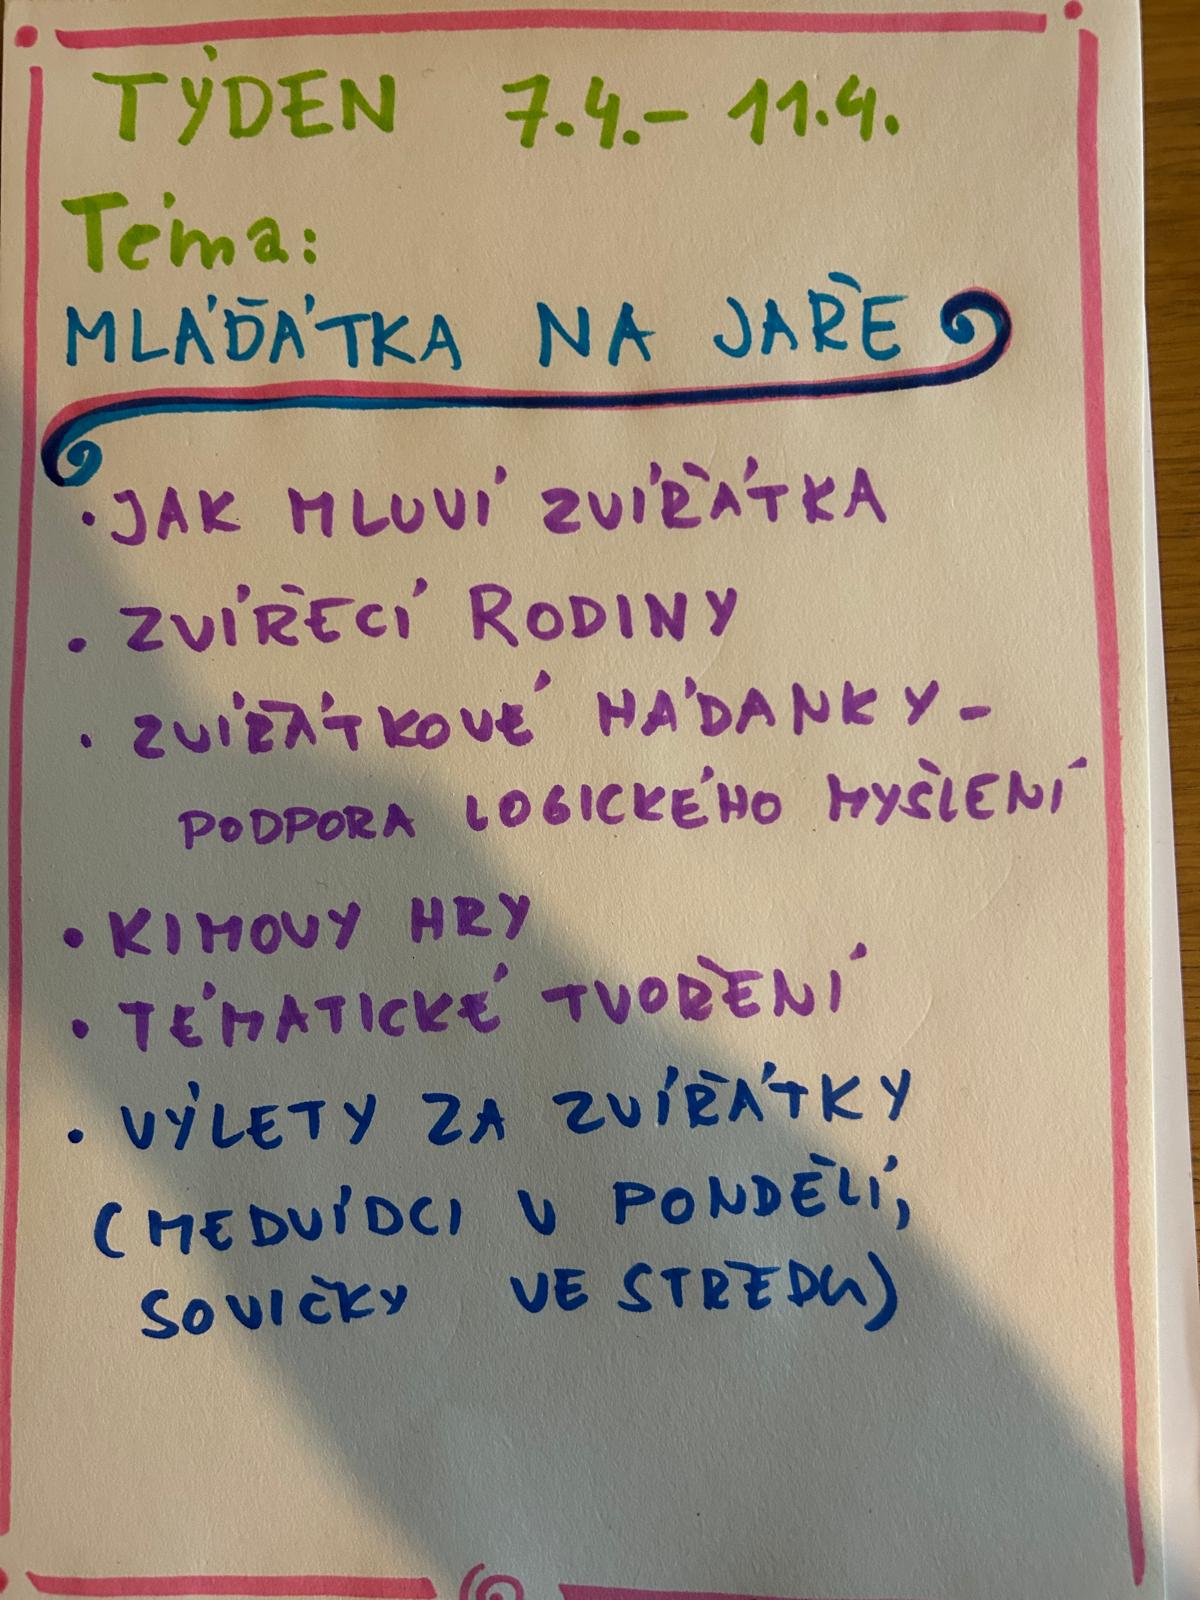 TÝDEN 7.4.- 11.4.
Téma:
MLÁĎÁTKA NA JAŘE
• JAK MLUVÍ ZVÍŘÁTKA
• ZVÍŘECÍ RODINY
• ZVÍŘÁTKOVÉ HÁDANKY -
PODPORA LOGICKÉHO MYŠLENÍ
• KIMOVY HRY
• TÉMATICKÉ TVOŘENÍ
• VÝLETY ZA ZVÍŘÁTKY
(MEDVÍDCI V PONDĚLÍ,
SOVIČKY VE STŘEDU)